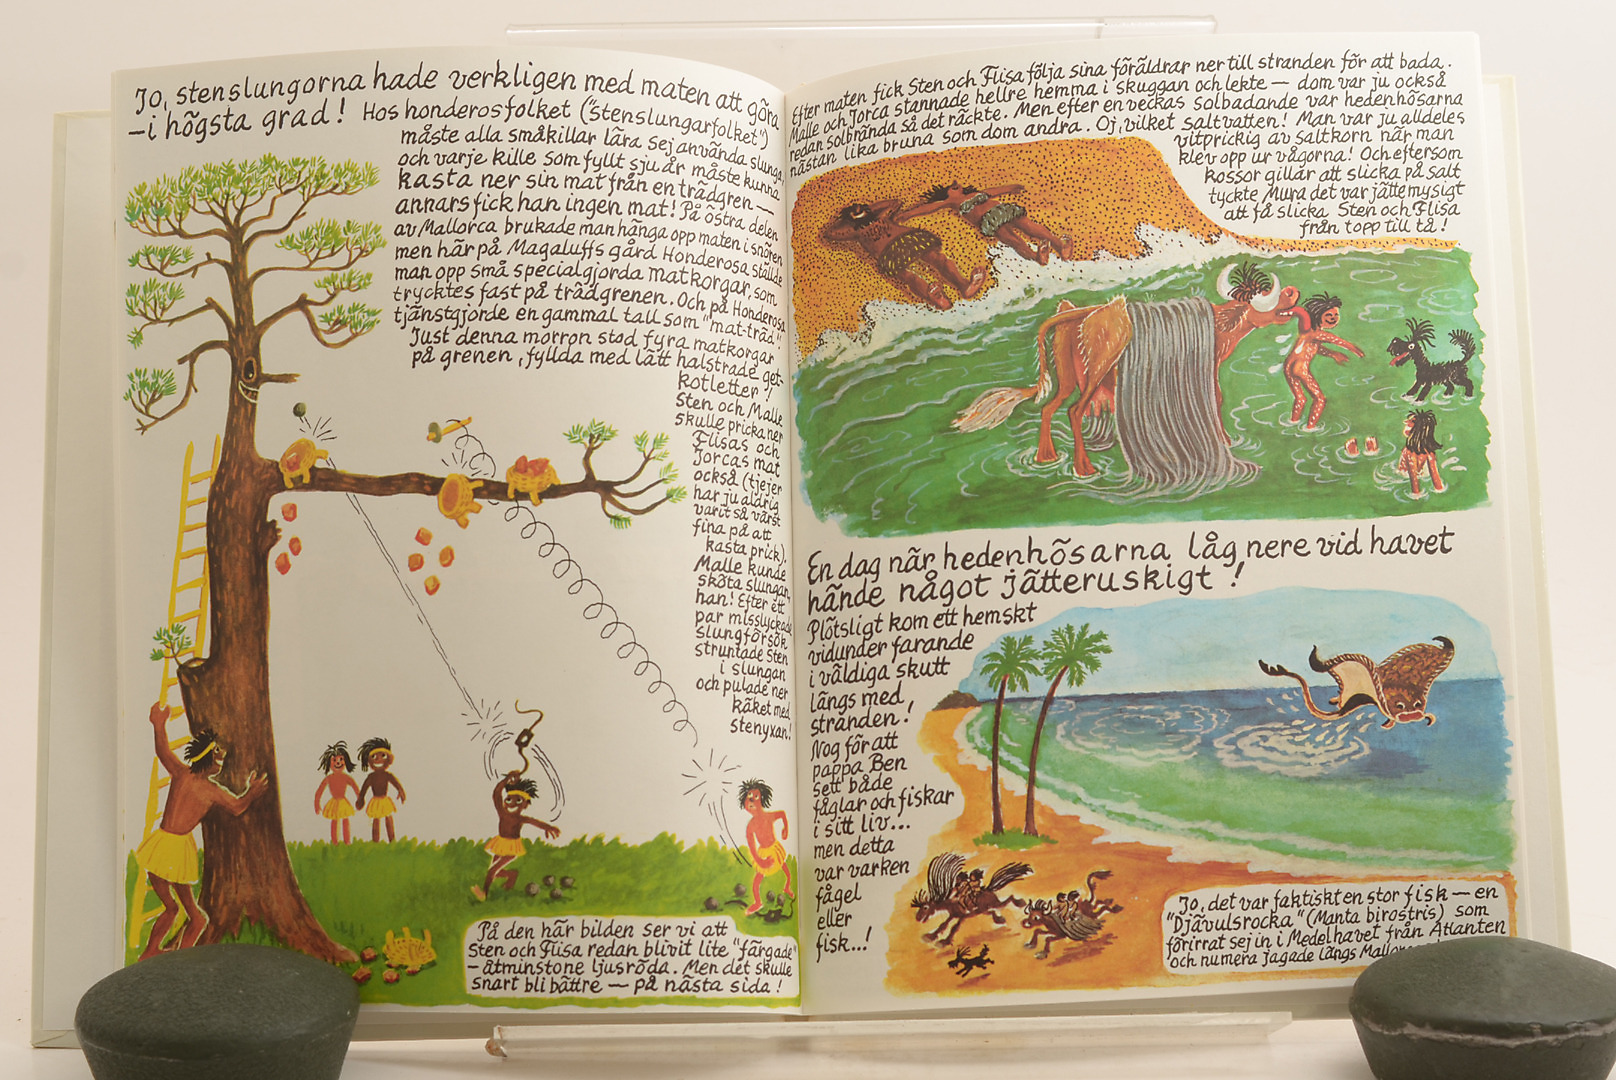 Jo, stenslungorna hade verkligen med maten att göra
– i högsta grad! Hos honderosfolket ("stenslungarfolket")
måste alla småkillar lära sej använda slunga,
och varje kille som fyllt sju år måste kunna
kasta ner sin mat från en trädgren —
annars fick han ingen mat! På östra delen
av Mallorca brukade man hänga opp maten i snören
men här på Magaluffs gård Honderosa ställde
man opp små specialgjorda matkorgar, som
trycktes fast på trädgrenen. Och på Honderosa
tjänstgjorde en gammal tall som "mat-träd".
Just denna morron stod fyra matkorgar
på grenen, fyllda med lätt halstrade get-
kotletter!
Sten och Malle
skulle pricka ner
Flisas och
Jorcas mat
också (tjejer
har ju aldrig
varit så värst
fina på att
kasta prick).
Malle kunde
sköta slungan,
han! Efter ett
par misslyckade
slungförsök
struntade Sten
i slungan
och pulade ner
käket med
stenyxan!
På den här bilden ser vi att
Sten och Flisa redan blivit lite "färgade"
– åtminstone ljusröda. Men det skulle
snart bli bättre — på nästa sida!
Efter maten fick Sten och Flisa följa sina föräldrar ner till stranden för att bada.
Malle och Jorca stannade hellre hemma i skuggan och lekte — dom var ju också
redan solbrända så det räckte. Men efter en veckas solbadande var hedenhösarna
nästan lika bruna som dom andra. Oj, vilket saltvatten! Man var ju alldeles
vitprickig av saltkorn när man
klev opp ur vågorna! Och eftersom
kossor gillar att slicka på salt
tyckte Mura det var jättemysigt
att få slicka Sten och Flisa
från topp till tå!
En dag när hedenhösarna låg nere vid havet
hände något jätteruskigt!
Plötsligt kom ett hemskt
vidunder farande
i väldiga skutt
längs med
stranden!
Nog för att
pappa Ben
sett både
fåglar och fiskar
i sitt liv...
men detta
var varken
fågel
eller
fisk...!
Jo, det var faktiskt en stor fisk — en
"Djävulsrocka" (Manta birostris) som
förirrat sej in i Medelhavet från Atlanten
och numera jagade längs